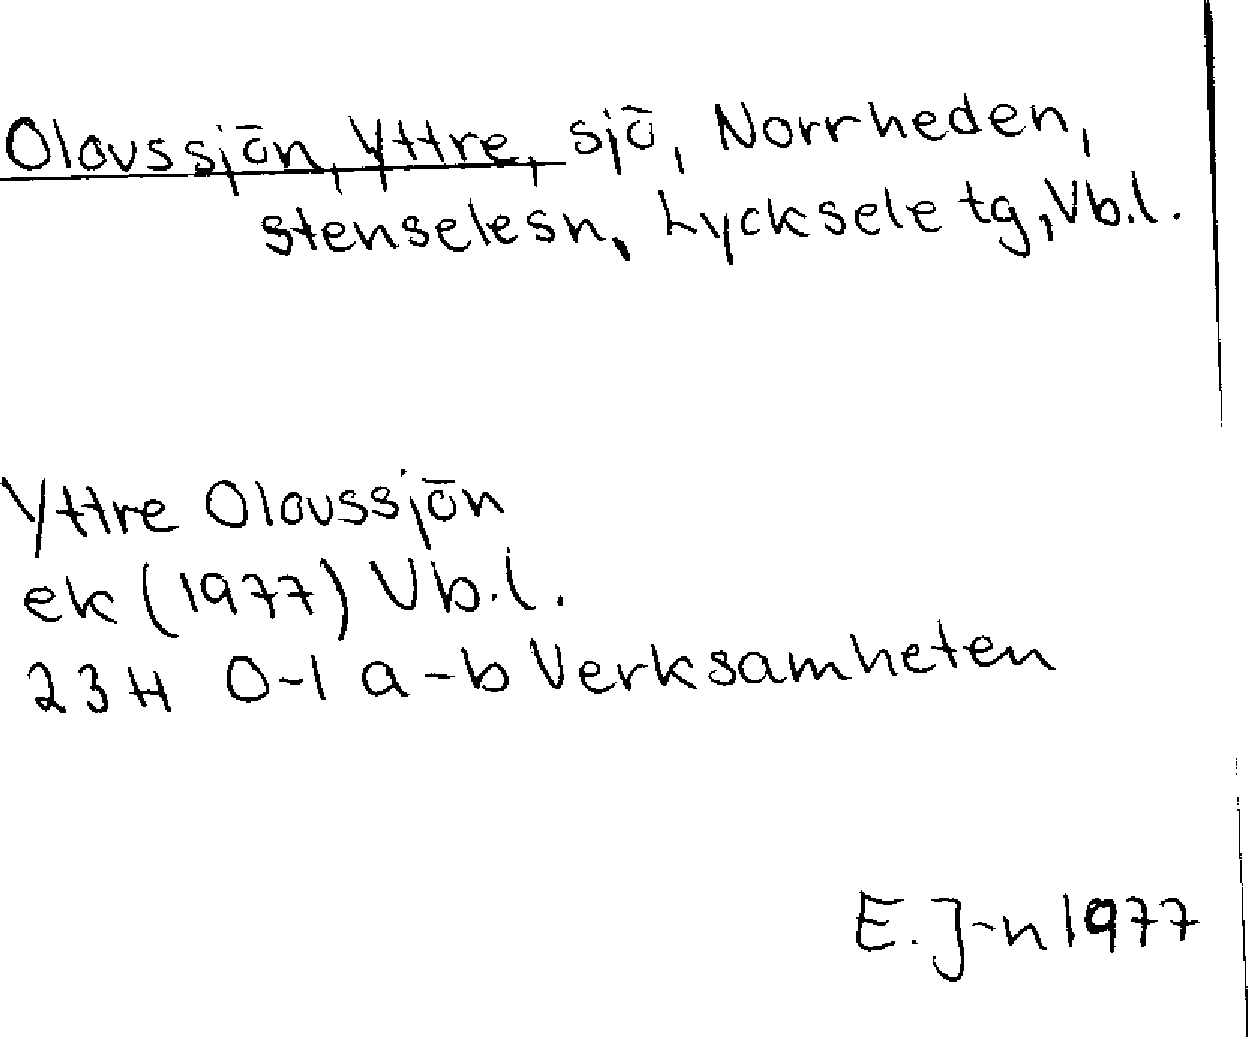 Olovssjön, Yttre, sjö, Norrheden,
Stenselesn, Lycksele tg, Vb.l.
Yttre Olovssjön
ek (1977) Vb.l.
23H 0-1 a-b Verksamheten
E. J-n 1977